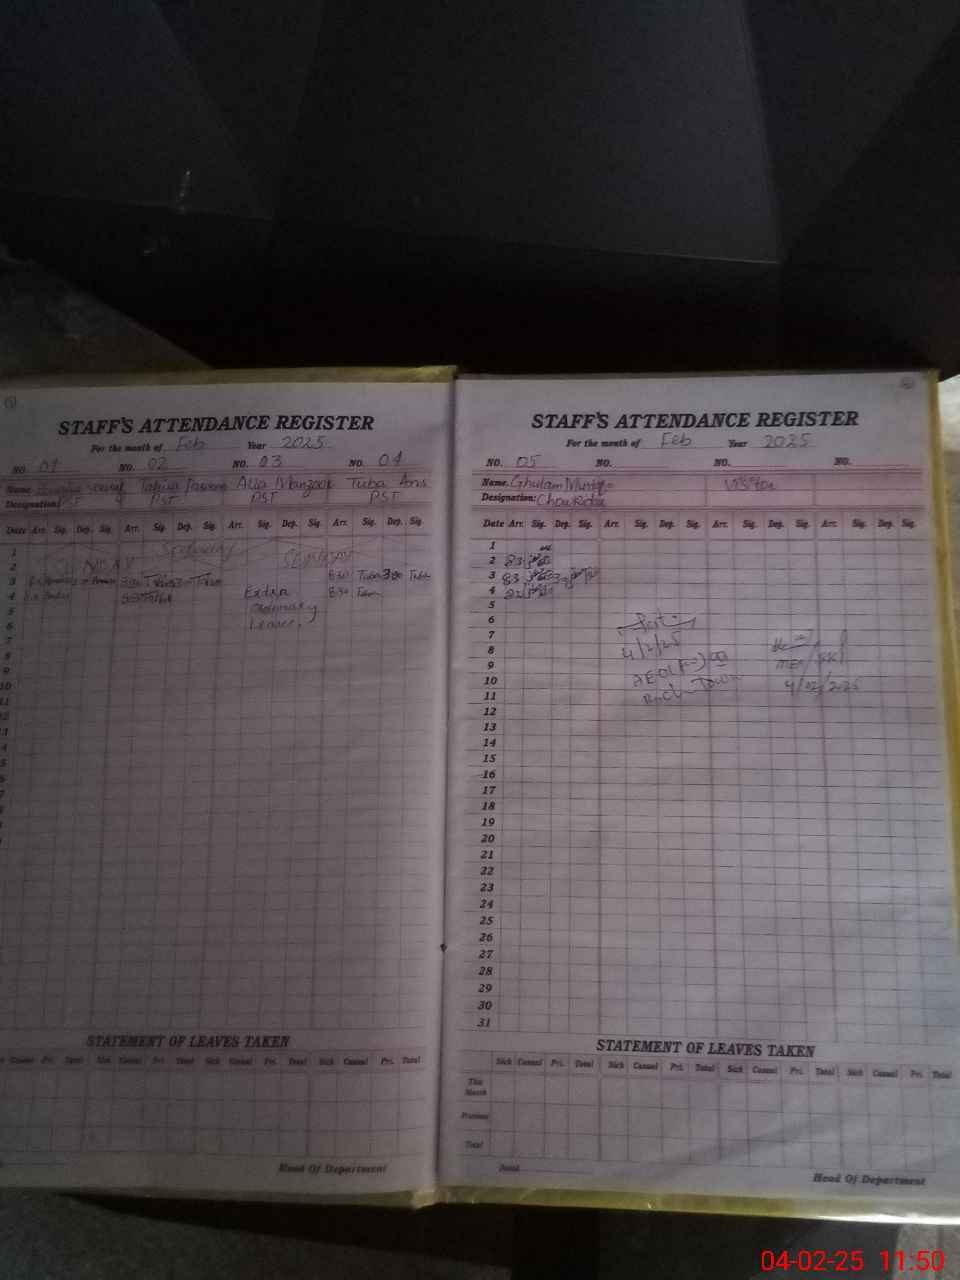 STAFF'S ATTENDANCE REGISTER
For the month of Feb Year 2025
NO. 01 NO. 02 NO. 03 NO. 04
Name Tahira Alia Manzoor Tuba Anis
Designation: PST PST PST
Date Arr. Sig. Dep. Sig. Arr. Sig. Dep. Sig. Arr. Sig. Dep. Sig. Arr. Sig. Dep. Sig.
1
2 SUNDAY SUNDAY
3 830 Tuba 300 Tuba
4 Extra 830 Tuba
5
6 Leave.
7
8
9
10
11
STATEMENT OF LEAVES TAKEN
Casual Pri. Total Sick Casual Pri. Total Sick Casual Pri. Total Sick Casual Pri. Total
Head Of Department
STAFF'S ATTENDANCE REGISTER
For the month of Feb Year 2025
NO. 05 NO. NO. NO.
Name. Ghulam Mustafa Visitor
Designation: Chowkidar
Date Arr. Sig. Dep. Sig. Arr. Sig. Dep. Sig. Arr. Sig. Dep. Sig. Arr. Sig. Dep. Sig.
1
2
3
4
5
6
7 4/2/25
8
9
10 Town 4/02/2025
11
12
13
14
15
16
17
18
19
20
21
22
23
24
25
26
27
28
29
30
31
STATEMENT OF LEAVES TAKEN
Sick Casual Pri. Total Sick Casual Pri. Total Sick Casual Pri. Total Sick Casual Pri. Total
This Month
Previous
Total
Head Of Department
04-02-25 11:50